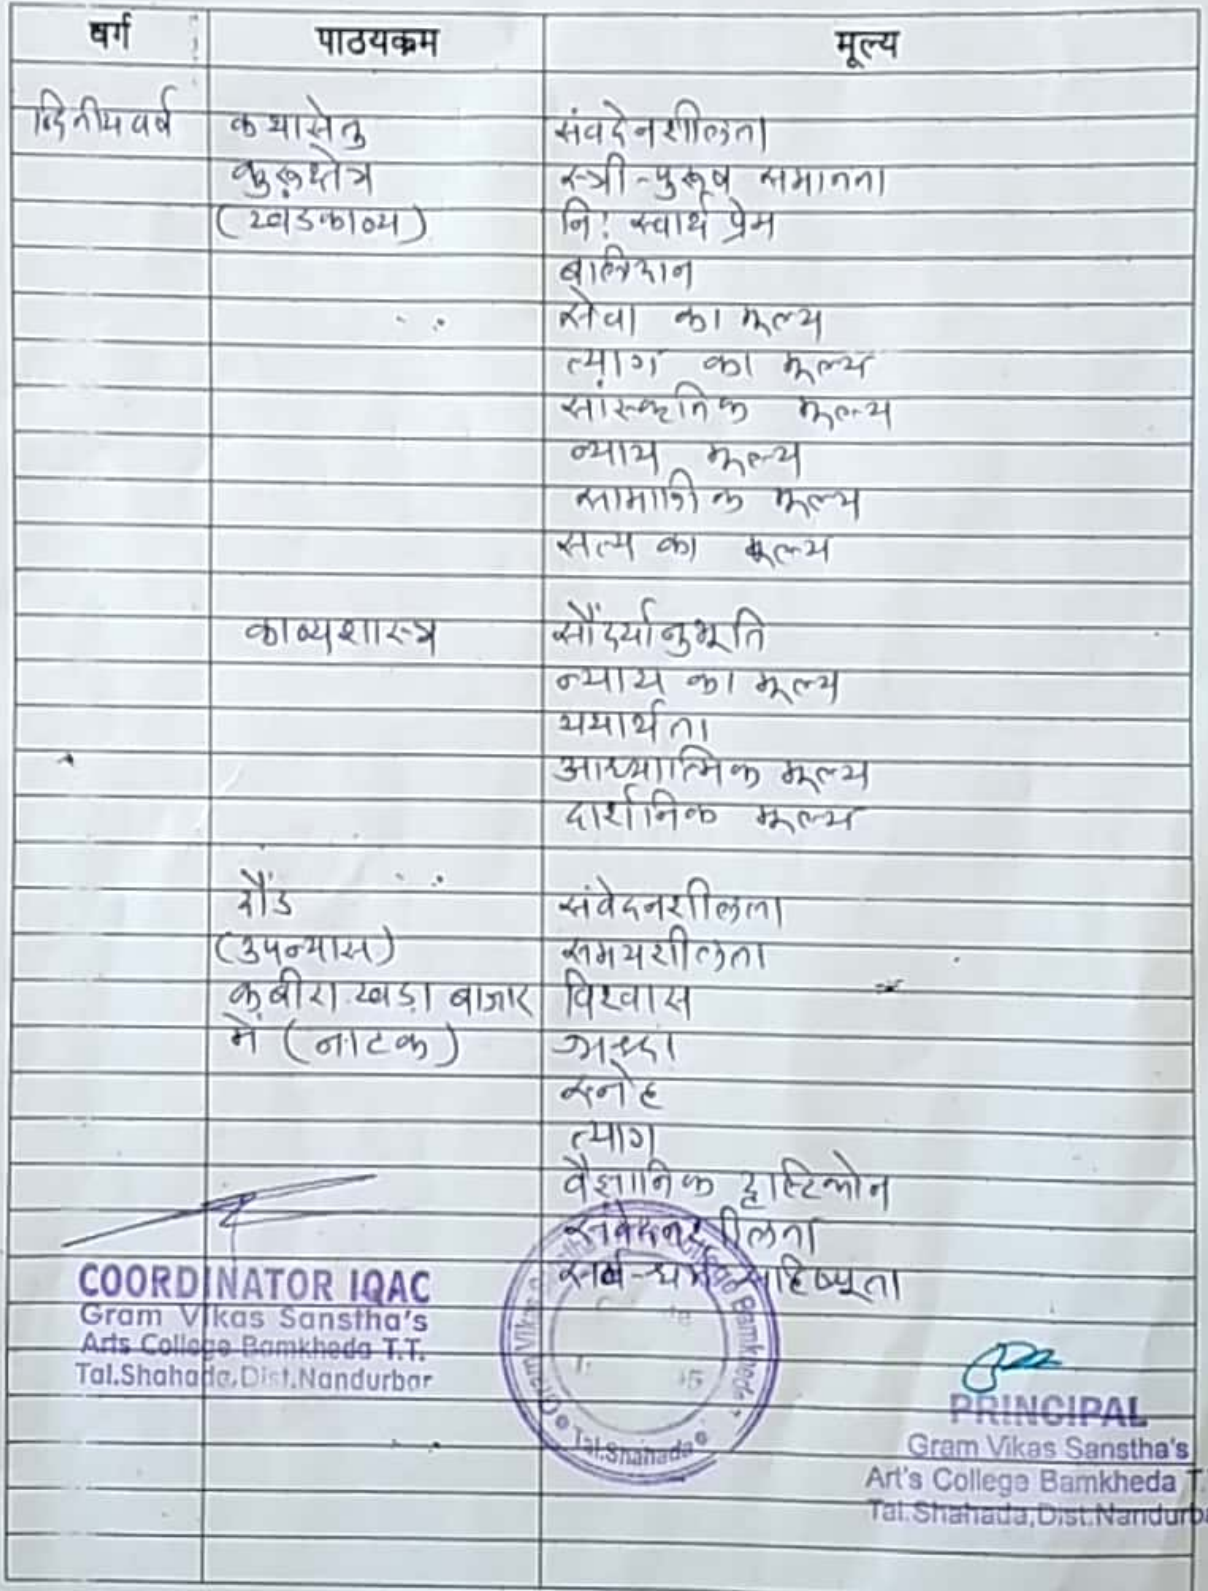 वर्ग पाठयक्रम मूल्य
द्वितीय वर्ष कथासेतु संवदेनशीलता
कुरूक्षेत्र स्त्री-पुरूष समानता
(खंडकाव्य) नि: स्वार्थ प्रेम
बलिदान
सेवा का मूल्य
त्याग का मूल्य
सांस्कृतिक मूल्य
न्याय मूल्य
सामाजिक मूल्य
सत्य का मूल्य
काव्यशास्त्र सौंदर्यानुभूति
न्याय का मूल्य
यथार्थता
आध्यात्मिक मूल्य
दार्शनिक मूल्य
दौड संवेदनशीलता
(उपन्यास) समयशीलता
कबीरा खड़ा बाजार विश्वास
में (नाटक) श्रध्दा
स्नेह
त्याग
वैज्ञानिक दृष्टिकोन
संवेदनशीलता
सर्व-धर्म सहिष्णूता
COORDINATOR IQAC
Gram Vikas Sanstha's
Arts College Bamkheda T.T.
Tal.Shahada,Dist.Nandurbar
Gram Vikas Bamkheda
Tal.Shahada
PRINCIPAL
Gram Vikas Sanstha's
Art's College Bamkheda T.
Tal.Shahada,Dist.Nandurba